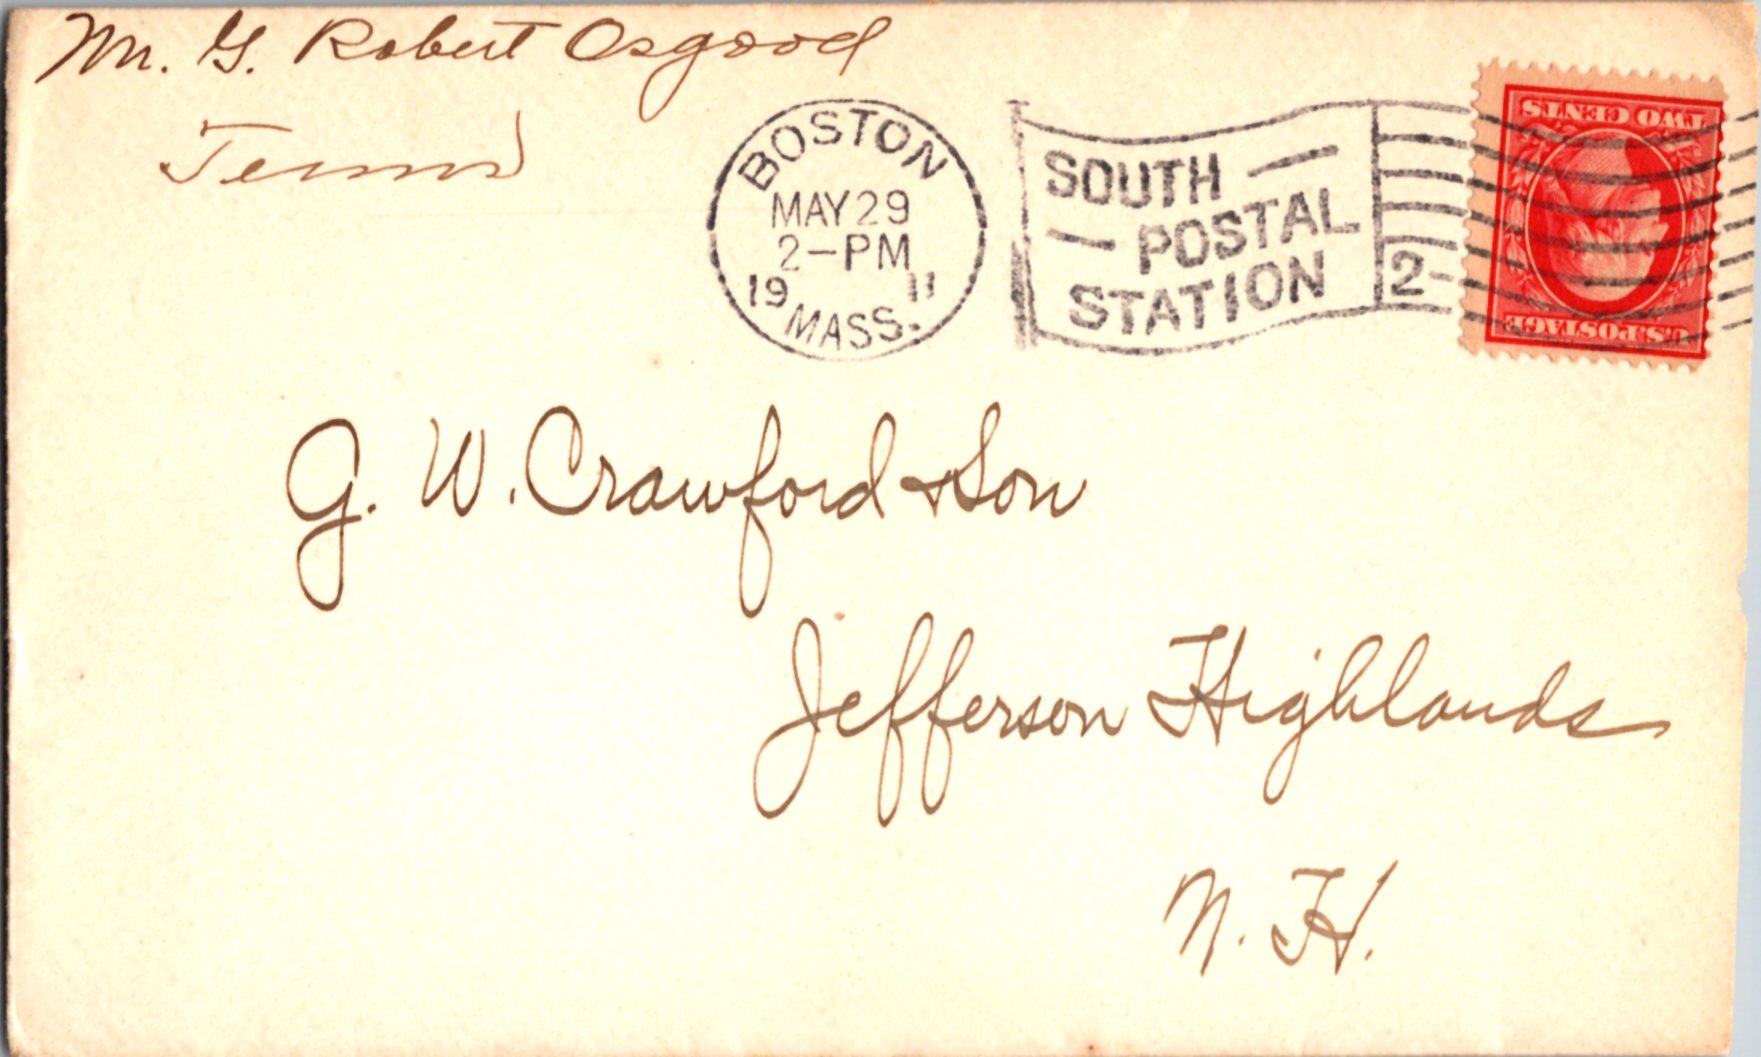 Mr. G. Robert Osgood
Terms
BOSTON
MAY 29
2-PM
19 11
MASS.
SOUTH
POSTAL
STATION
2
TWO CENTS
U.S. POSTAGE
G. W. Crawford & Son
Jefferson Highlands
N. H.